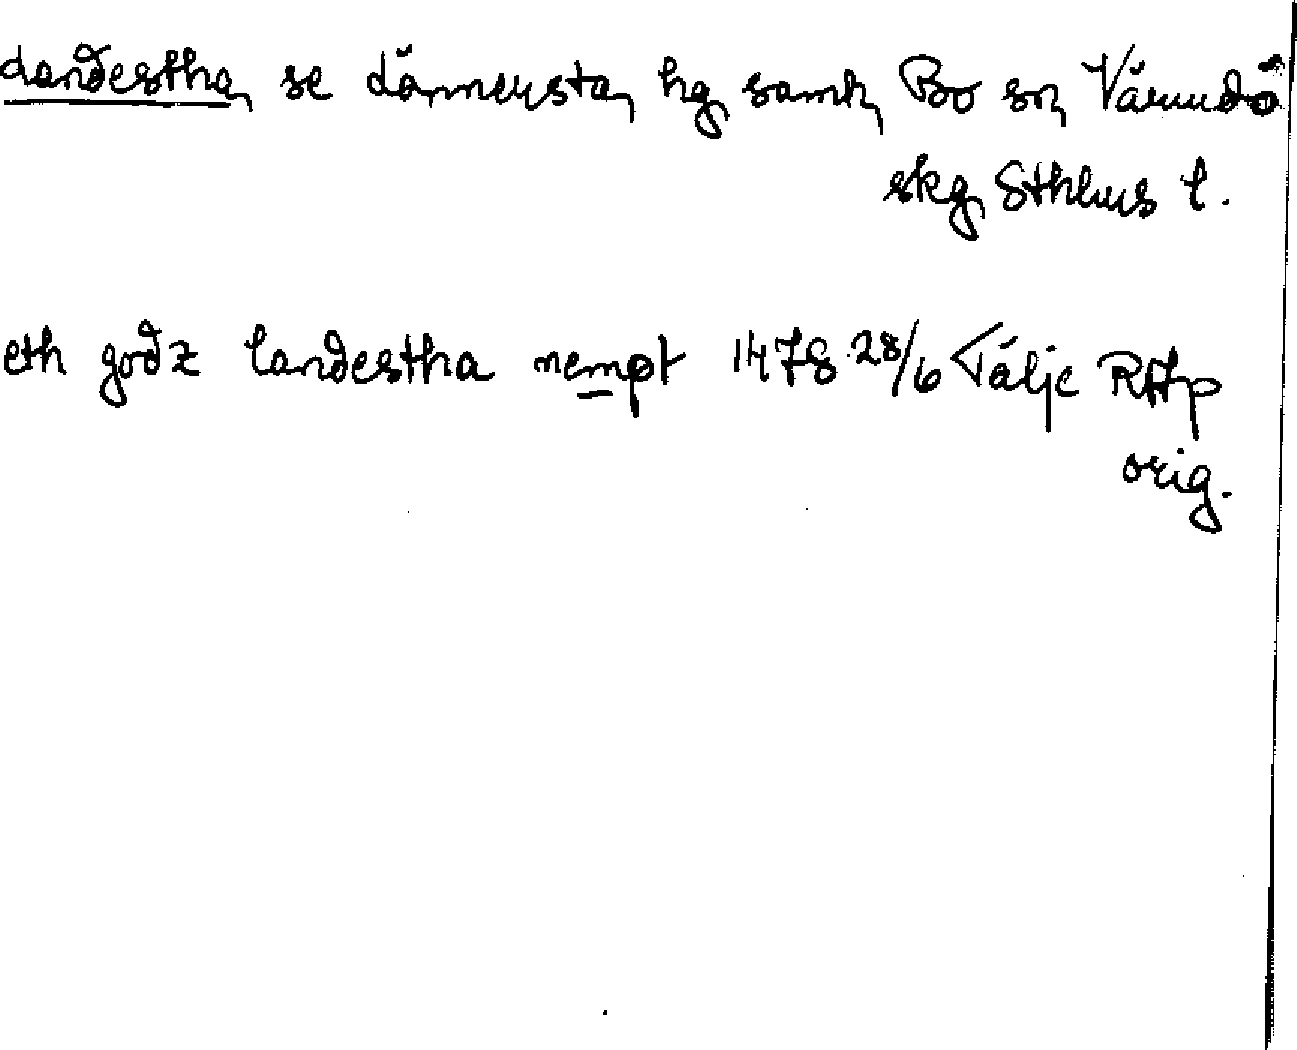 Landestha, se Lännersta, hg samt, Bo sn, Värmdö
skg, Sthlms l.
eth godz landestha nempt 1478 28/6 Tälje RAp
orig.